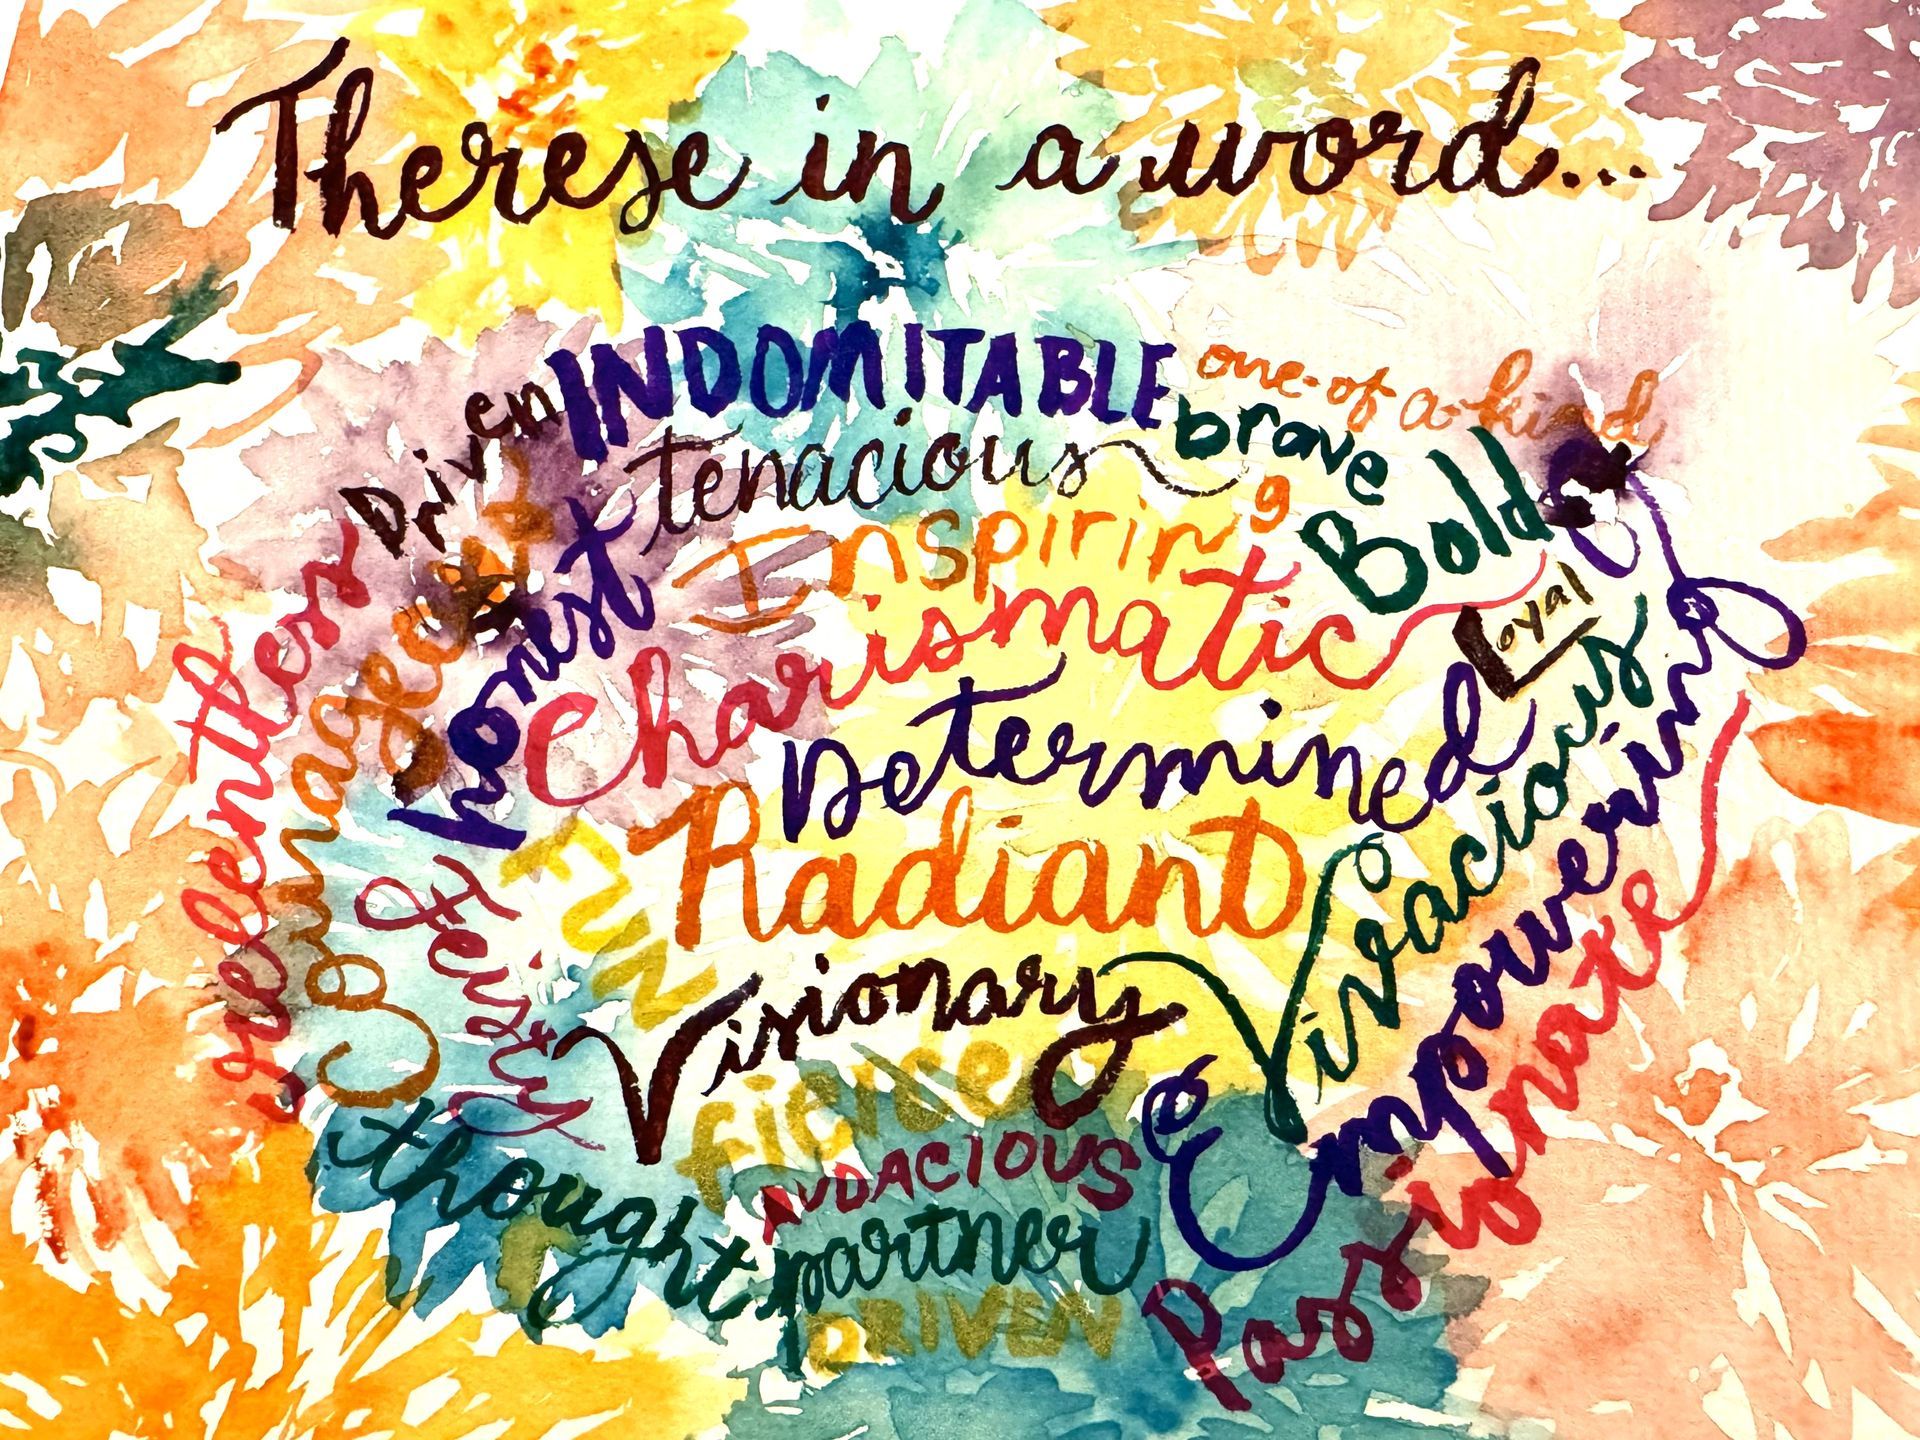 Therese in a word...
INDOMITABLE
one-of-a-kind
Driven
tenacious
brave
Bold
Inspiring
honest
Courageous
relentless
Charismatic
Loyal
Determined
Vivacious
Empowering
Passionate
Radiant
FUN
Feisty
Visionary
fierce
AUDACIOUS
thought partner
DRIVEN